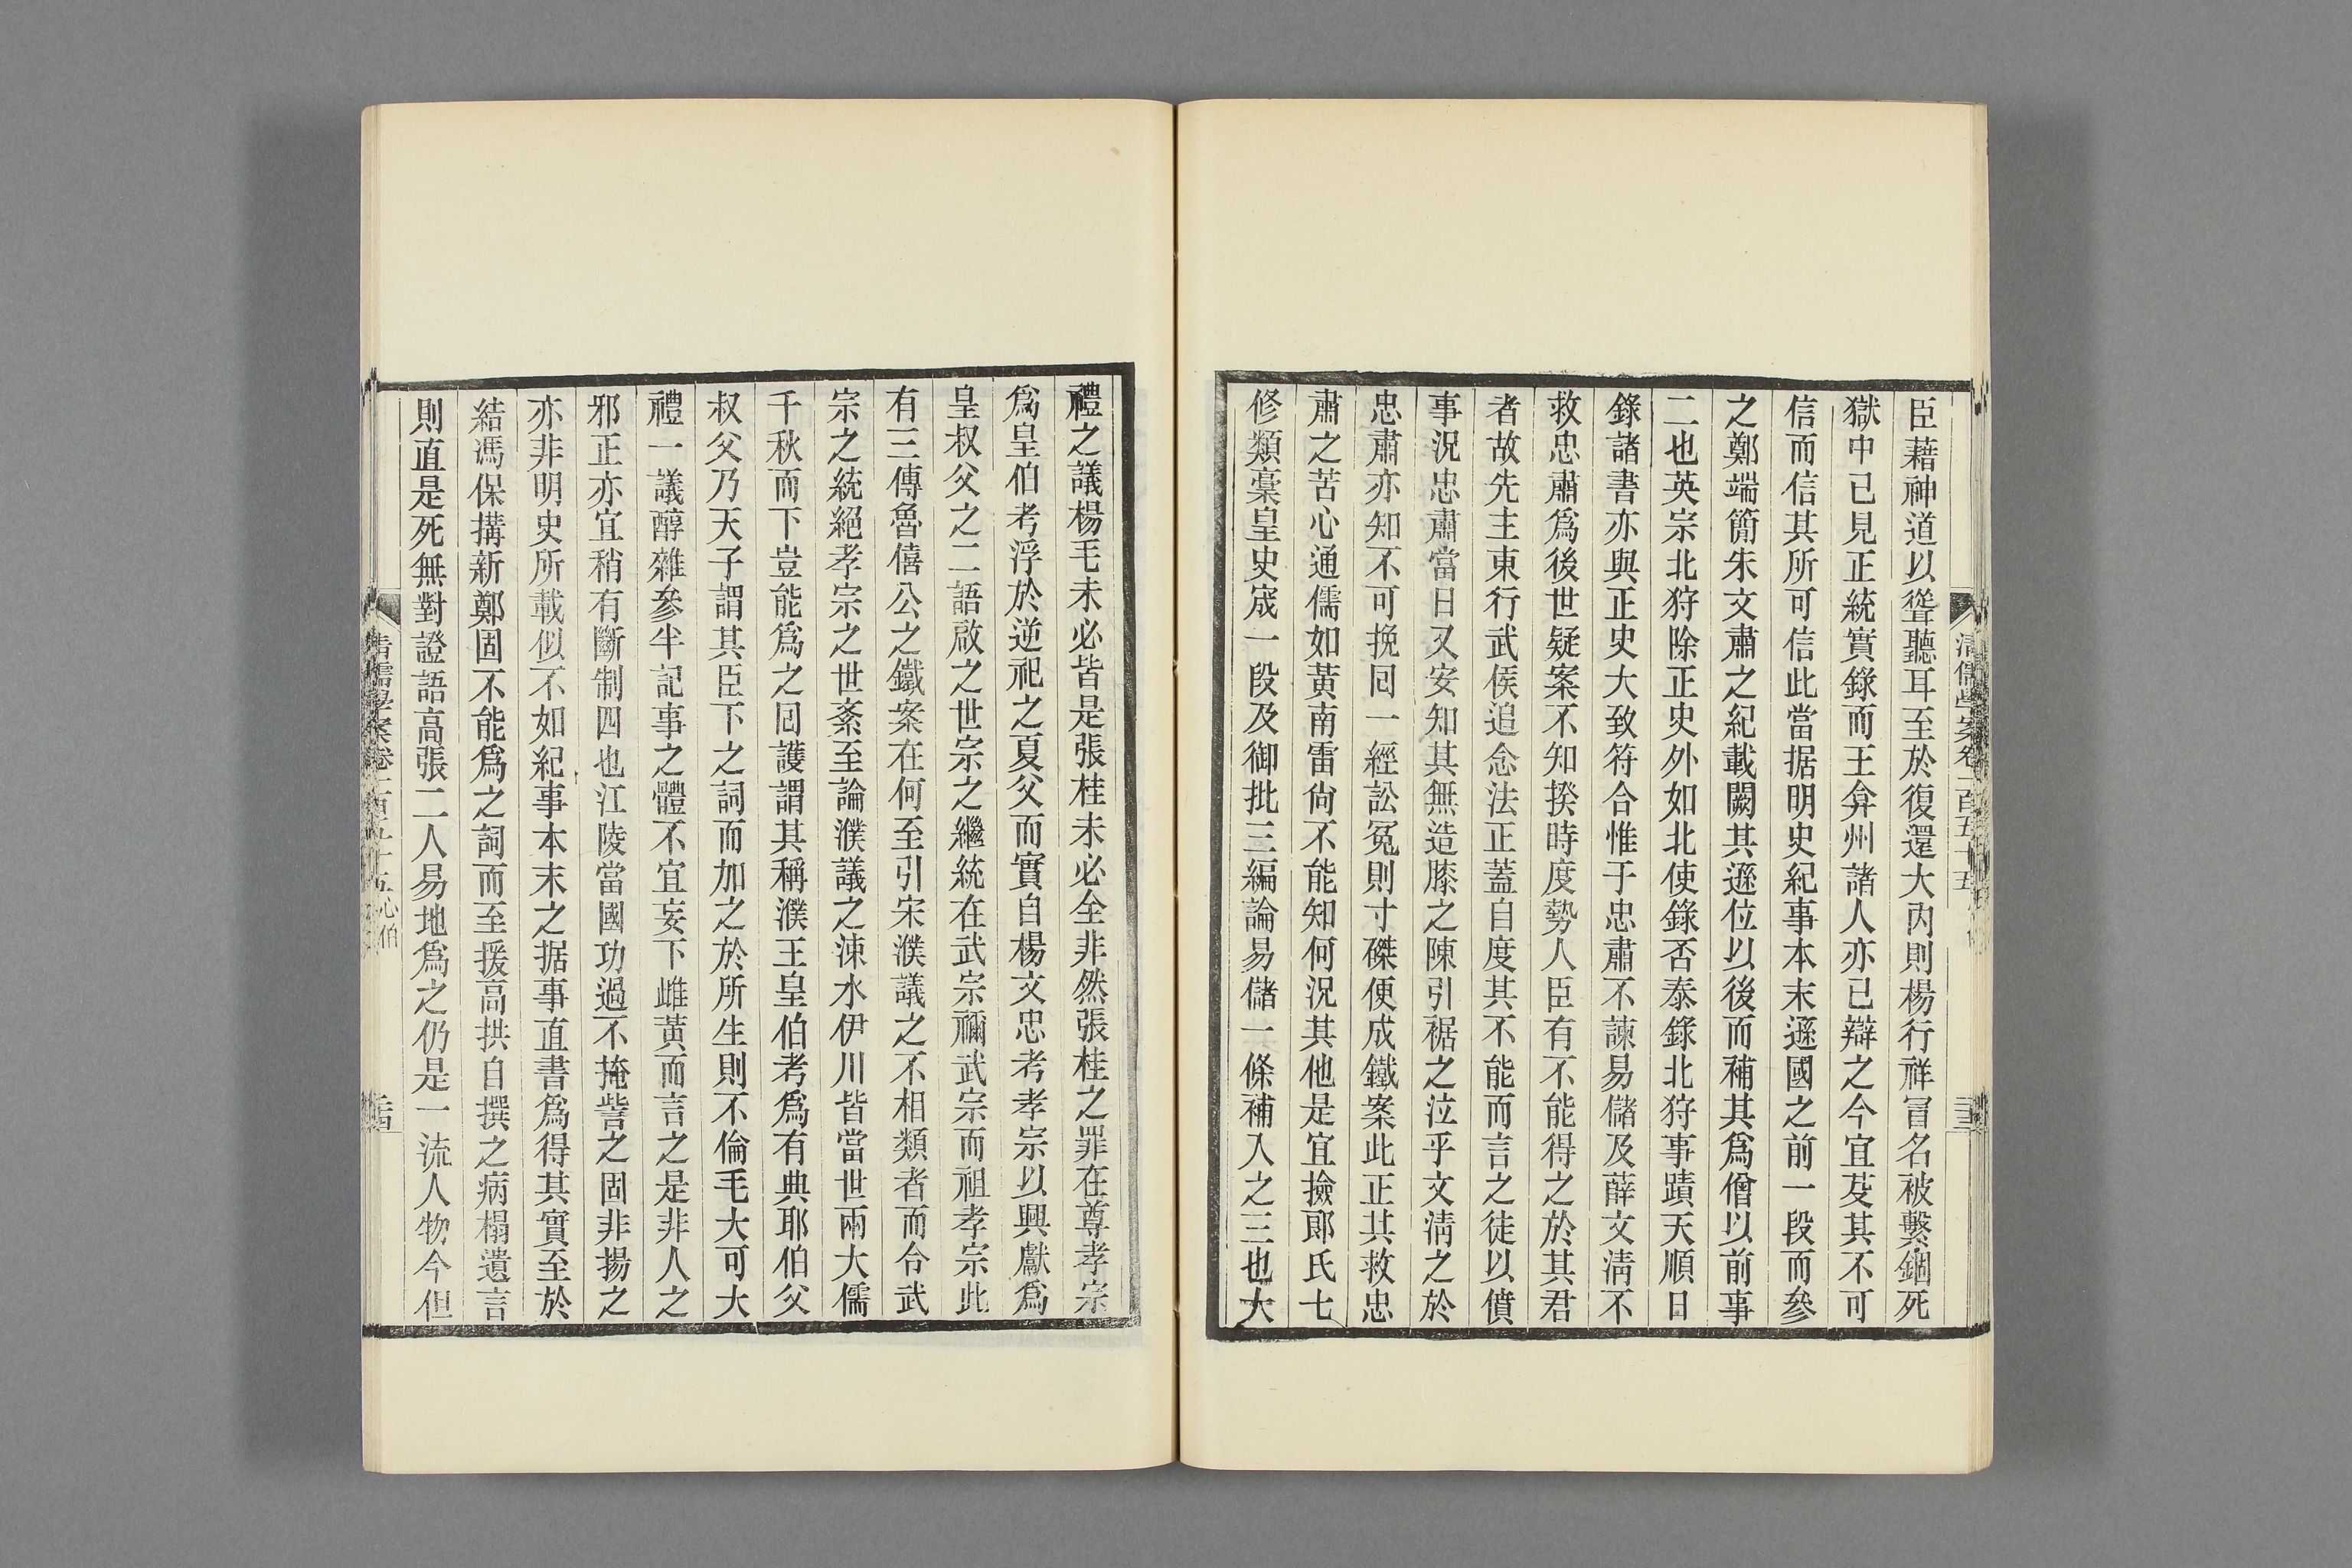 臣藉神道以聳聽耳至於復還大內則楊行祥冒名被繫錮死
獄中已見正統實錄而王弇州諸人亦已辯之今宜芟其不可
信而信其所可信此當据明史紀事本末遜國之前一段而參
之鄭端簡朱文肅之紀載闕其遜位以後而補其爲僧以前事
二也英宗北狩除正史外如北使錄否泰錄北狩事蹟天順日
錄諸書亦與正史大致符合惟于忠肅不諫易儲及薛文淸不
救忠肅爲後世疑案不知揆時度勢人臣有不能得之於其君
者故先主東行武侯追念法正蓋自度其不能而言之徒以僨
事況忠肅當日又安知其無造膝之陳引裾之泣乎文淸之於
忠肅亦知不可挽囘一經訟冤則寸磔便成鐵案此正其救忠
肅之苦心通儒如黃南雷尙不能知何況其他是宜撿郞氏七
修類稾皇史宬一段及御批三編論易儲一條補入之三也大
禮之議楊毛未必皆是張桂未必全非然張桂之罪在尊孝宗
爲皇伯考浮於逆祀之夏父而實自楊文忠考孝宗以興獻爲
皇叔父之二語啟之世宗之繼統在武宗禰武宗而祖孝宗此
有三傳魯僖公之鐵案在何至引宋濮議之不相類者而合武
宗之統絕孝宗之世紊至論濮議之涑水伊川皆當世兩大儒
千秋而下豈能爲之囘護謂其稱濮王皇伯考爲有典耶伯父
叔父乃天子謂其臣下之詞而加之於所生則不倫毛大可大
禮一議醇雜參半記事之體不宜妄下雌黃而言之是非人之
邪正亦宜稍有斷制四也江陵當國功過不掩訾之固非揚之
亦非明史所載似不如紀事本末之据事直書爲得其實至於
結馮保搆新鄭固不能爲之詞而至援高拱自撰之病榻遺言
則直是死無對證語高張二人易地爲之仍是一流人物今但